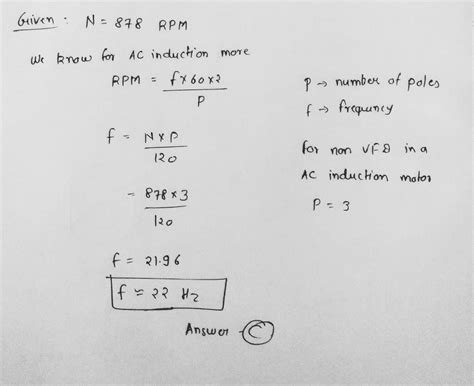 Given : N = 878 RPM
We know for AC induction more
RPM = f×60×2 / P
P → number of poles
f → frequncy
f = N×P / 120
for non VFD in a
AC induction motor
P = 3
= 878×3 / 120
f = 21.96
f ≈ 22 Hz
Answer - C